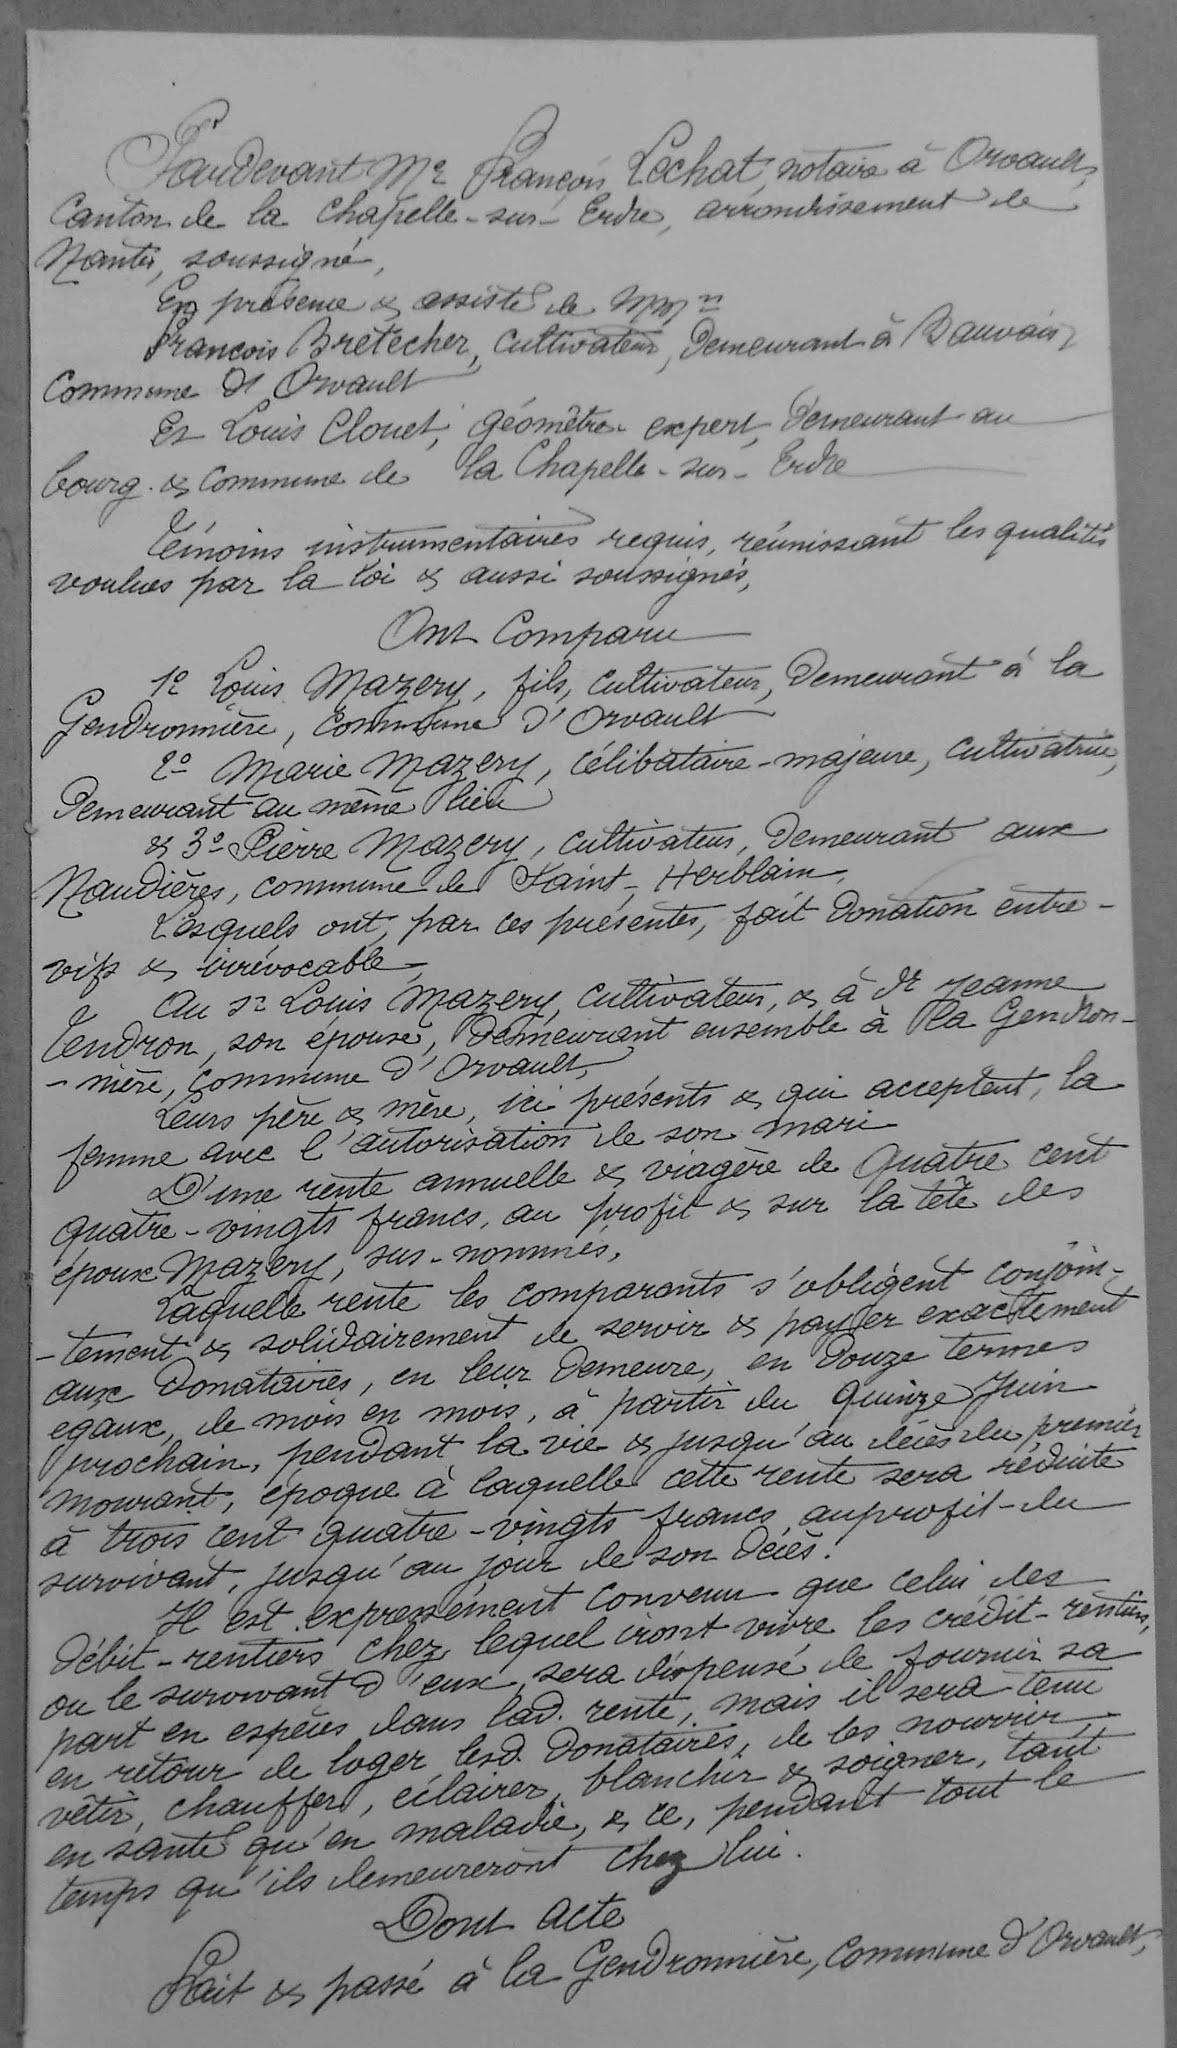 Pardevant Me François Lechat, notaire à Orvault,
Canton de la Chapelle-sur-Erdre, arrondissement de
Nantes, soussigné,
En présence & assisté de MM rs
François Bretécher, cultivateur, demeurant à Bauvais,
commune d'Orvault
Et Louis Clouet, géomètre expert, demeurant au
bourg & commune de la Chapelle-sur-Erdre
Témoins instrumentaires requis, réunissant les qualités
voulues par la loi & aussi soussignés,
Ont Comparu
1º Louis Mazery, fils, cultivateur, demeurant à la
Gendronnière, commune d'Orvault
2º Marie Mazery, célibataire-majeure, cultivatrice,
demeurant au même lieu
& 3º Pierre Mazery, cultivateur, demeurant aux
Naudières, commune de Saint-Herblain,
Lesquels ont, par ces présentes, fait donation entre-
vifs & irrévocable,
Au sr Louis Mazery, cultivateur, & à de Jeanne
Tendron, son épouse, demeurant ensemble à la Gendron-
-nière, commune d'Orvault,
Leurs père & mère, ici présents & qui acceptent, la
femme avec l'autorisation de son mari
D'une rente annuelle & viagère de quatre cent
quatre-vingts francs, au profit & sur la tête des
époux Mazery, sus-nommés,
Laquelle rente les comparants s'obligent conjoin-
-tement & solidairement de servir & payer exactement
aux donataires, en leur demeure, en douze termes
egaux, de mois en mois, à partir du quinze Juin
prochain, pendant la vie & jusqu'au décès du premier
mourant, époque à laquelle cette rente sera réduite
à trois cent quatre-vingts francs, au profit-du
survivant, jusqu'au jour de son décès.
Il est expressément convenu que celui des
débit-rentiers chez lequel iront vivre les crédit-rentiers,
ou le survivant d'eux, sera dispensé de fournir sa
part en espèces dans lad. rente, mais il sera tenu
en retour de loger lesd. donataires, de les nourrir,
vêtir, chauffer, éclairer, blanchir & soigner, tant
en santé qu'en maladie, & ce, pendant tout le
temps qu'ils demeureront chez lui.
Dont acte
Fait & passé à la Gendronnière, commune d'Orvault,